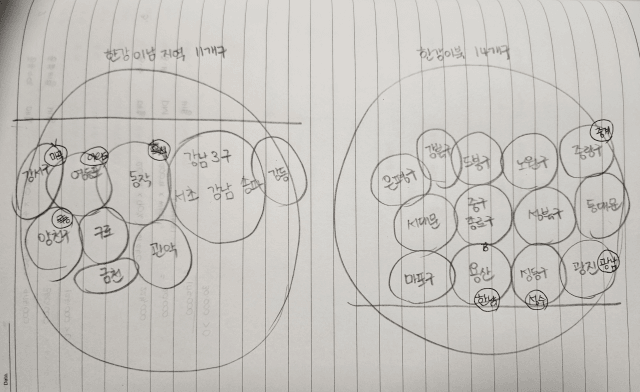 한강 이남 지역 11개구
강서구
영등포
동작
강남3구
서초 강남 송파
강동
양천구
구로
금천
관악
한강이북 14개구
은평구
강북구
도봉구
노원구
중랑구
서대문
중구
종로구
성북구
동대문
마포구
용산
성동구
광진
한남
성수